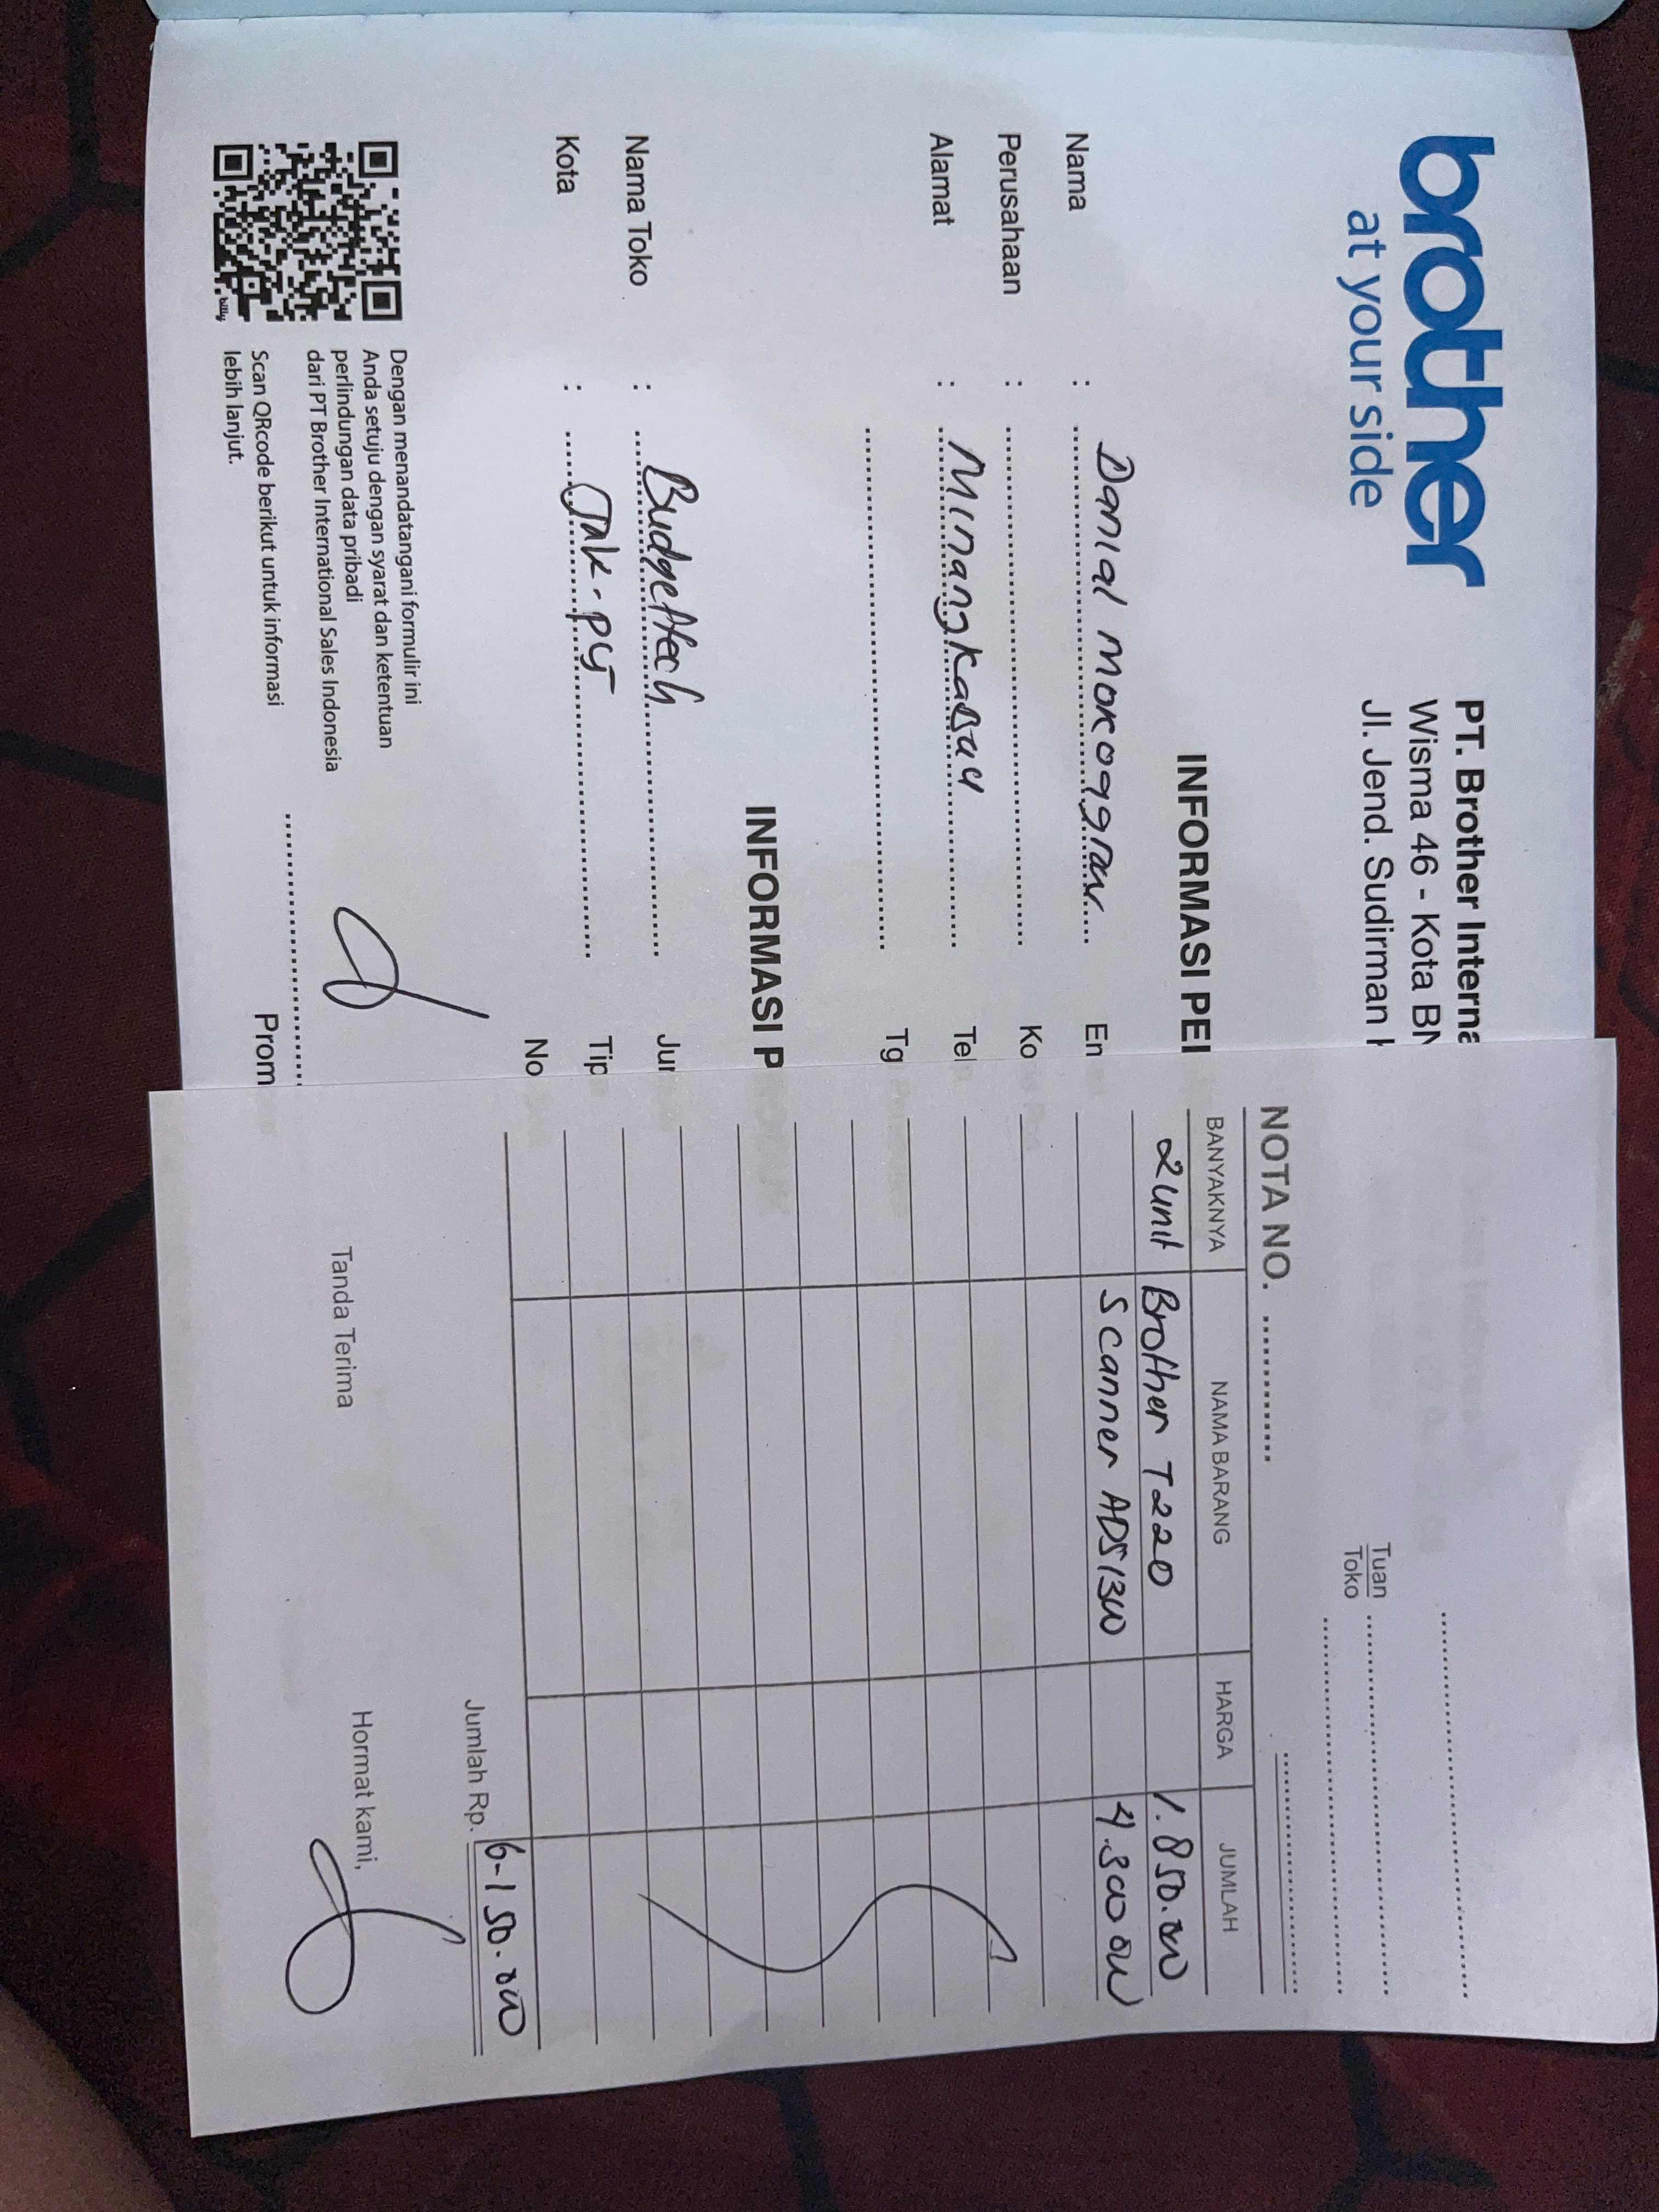 brother
at your side
PT. Brother Interna
Wisma 46 - Kota BN
Jl. Jend. Sudirman K
INFORMASI PEI
Nama : Danial Mokoggraw
Perusahaan :
Alamat : Minangkabau
En
Ko
Tel
Tg
INFORMASI P
Nama Toko : Budgettech
Kota : Jak-pst
Jur
Tip
No
Dengan menandatangani formulir ini
Anda setuju dengan syarat dan ketentuan
perlindungan data pribadi
dari PT Brother International Sales Indonesia
Scan QRcode berikut untuk informasi
lebih lanjut.
bitly
Prom
Tuan
Toko
NOTA NO.
BANYAKNYA NAMA BARANG HARGA JUMLAH
2 unit Brother T220 1.850.000
Scanner ADS1300 4.300 000
Jumlah Rp. 6-150.000
Tanda Terima Hormat kami,